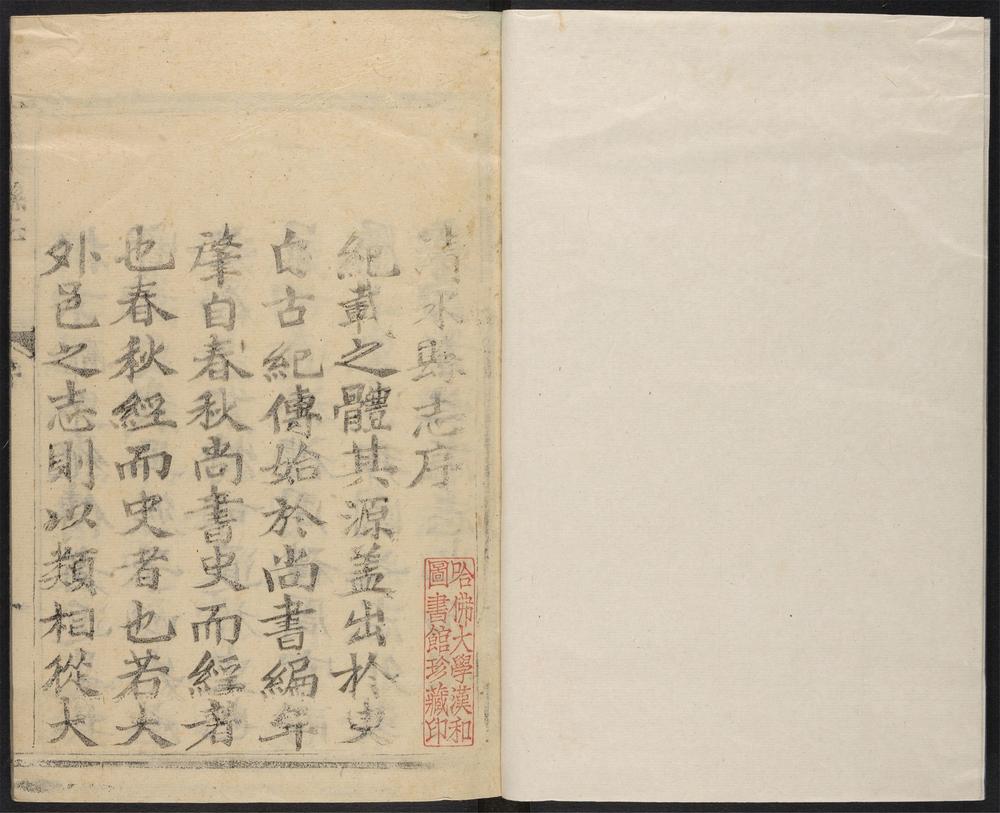 哈佛大學漢和
圖書館珍藏印
清水縣志序
紀事之體其源蓋出於史
自古紀傳始於尚書編年
肇自春秋尚書史而經者
也春秋經而史者也若大
外邑之志則以類相從大
縣志